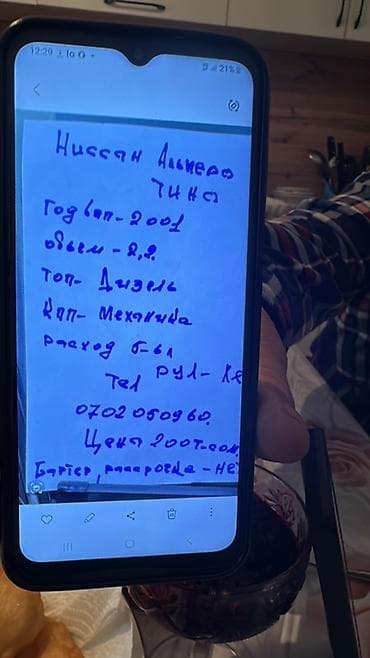 12:29
21%
Ниссан Альмера
Тина
Год вып - 2001
объем - 2,2
топ - Дизель
Кпп - Механика
расход 5-6л
рул - Ле
Тел
0702050960.
Цена 200т-сом
Бартер, рассрочка - нет